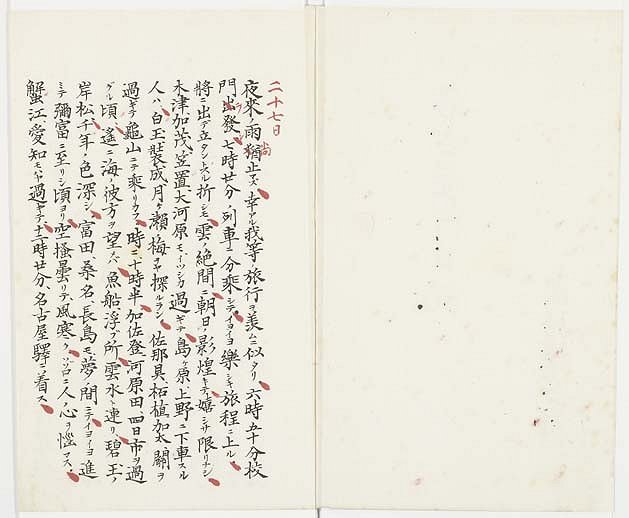 二十七日
夜來ノ雨猶止マズ、幸アル我等ノ旅行ヲ羨ムニ似タリ、六時五十分校
門出發、七時廿分ノ列車ニ分乘シテイヨイヨ樂シキ旅程ニ上ル、
將ニ出デ立タントスル折シモ、雲ノ絶間ニ朝日ノ影煌キテ嬉シサ限リナシ、
木津、加茂、笠置、大河原モ、イツシカ過ギテ島ヶ原、上野ニ下車スル
人ハ、白玉裝成ス月ヶ瀬ノ梅ヲヤ探ルラン、佐那具、柘植、加太、關ヲ
過ギテ龜山ニテ乘リカフ、時ニ十時半、加佐登、河原田、四日市ヲ過
グル頃、遙ニ海ノ彼方ヲ望メバ、魚船浮ブ所雲水ニ連リ、碧玉ノ
岸松、千年ノ色深シ、富田、桑名、長島モ、夢ノ間ニテイヨイヨ進
ミテ彌富ニ至リシ頃ヨリ、空搔曇リテ風寒ク、ソゾロニ人ノ心ヲ惱マス、
蟹江、愛知モハヤ過ギテ、十二時廿分、名古屋驛ニ着ス、